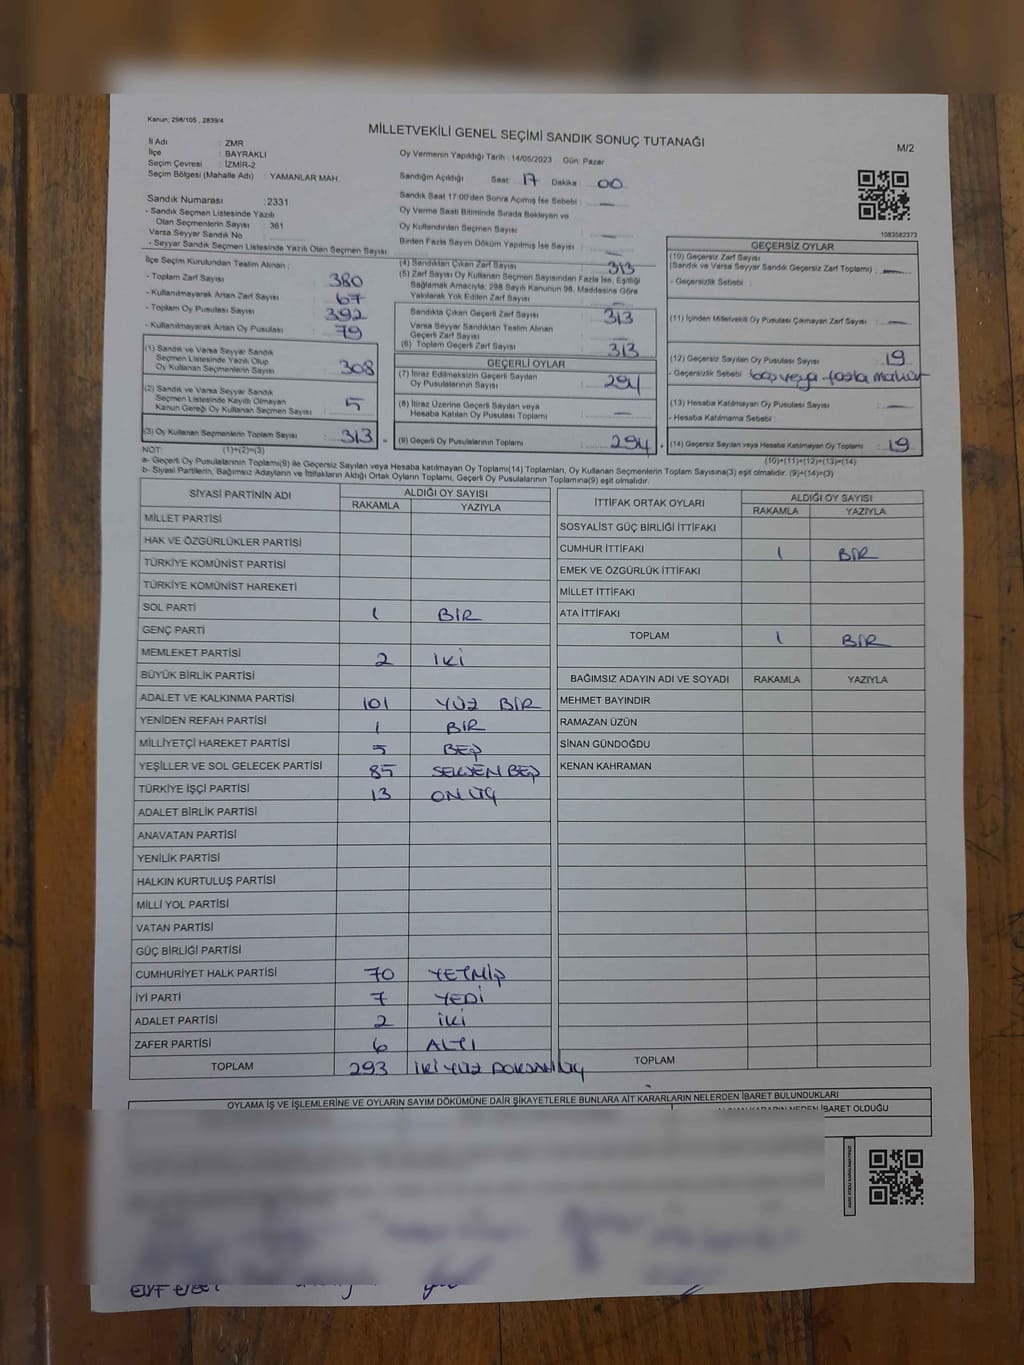 Kanun; 298/105 , 2839/4
MİLLETVEKİLİ GENEL SEÇİMİ SANDIK SONUÇ TUTANAĞI
M/2
İl Adı : ZMR
İlçe : BAYRAKLI
Seçim Çevresi : İZMİR-2
Seçim Bölgesi (Mahalle Adı) : YAMANLAR MAH.
Oy Vermenin Yapıldığı Tarih : 14/05/2023 Gün: Pazar
Sandığın Açıldığı Saat: 17 Dakika : 00
Sandık Saat 17:00'den Sonra Açımış İse Sebebi : —
Oy Verme Saati Bitiminde Sırada Bekleyen ve
Oy Kullandırılan Seçmen Sayısı : —
Birden Fazla Sayım Döküm Yapılmış İse Sayısı : —
1083582373
Sandık Numarası : 2331
- Sandık Seçmen Listesinde Yazılı
Olan Seçmenlerin Sayısı : 361
Varsa Seyyar Sandık No
- Seyyar Sandık Seçmen Listesinde Yazılı Olan Seçmen Sayısı
İlçe Seçim Kurulundan Teslim Alınan :
- Toplam Zarf Sayısı : 380
- Kullanılmayarak Artan Zarf Sayısı : 67
- Toplam Oy Pusulası Sayısı : 392
- Kullanılmayarak Artan Oy Pusulası : 79
(1) Sandık ve Varsa Seyyar Sandık
Seçmen Listesinde Yazılı Olup
Oy Kullanan Seçmenlerin Sayısı : 308
(2) Sandık ve Varsa Seyyar Sandık
Seçmen Listesinde Kayıtlı Olmayan
Kanun Gereği Oy Kullanan Seçmen Sayısı : 5
(3) Oy Kullanan Seçmenlerin Toplam Sayısı : 313
(4) Sandıktan Çıkan Zarf Sayısı : 313
(5) Zarf Sayısı Oy Kullanan Seçmen Sayısından Fazla İse, Eşitliği
Sağlamak Amacıyla; 298 Sayılı Kanunun 98. Maddesine Göre
Yakılarak Yok Edilen Zarf Sayısı : —
Sandıkta Çıkan Geçerli Zarf Sayısı : 313
Varsa Seyyar Sandıktan Teslim Alınan
Geçerli Zarf Sayısı : —
(6) Toplam Geçerli Zarf Sayısı : 313
GEÇERLİ OYLAR
(7) İtiraz Edilmeksizin Geçerli Sayılan
Oy Pusulalarının Sayısı : 294
(8) İtiraz Üzerine Geçerli Sayılan veya
Hesaba Katılan Oy Pusulası Toplamı : —
(9) Geçerli Oy Pusulalarının Toplamı : 294
GEÇERSİZ OYLAR
(10) Geçersiz Zarf Sayısı
(Sandık ve Varsa Seyyar Sandık Geçersiz Zarf Toplamı) : —
- Geçersizlik Sebebi :
(11) İçinden Milletvekili Oy Pusulası Çıkmayan Zarf Sayısı : —
(12) Geçersiz Sayılan Oy Pusulası Sayısı : 19
- Geçersizlik Sebebi boş veya fazla mühür
(13) Hesaba Katılmayan Oy Pusulası Sayısı : —
- Hesaba Katılmama Sebebi :
(14) Geçersiz Sayılan veya Hesaba Katılmayan Oy Toplamı : 19
NOT: (1)+(2)=(3)
(10)+(11)+(12)+(13)=(14)
a- Geçerli Oy Pusulalarının Toplamı(9) ile Geçersiz Sayılan veya Hesaba katılmayan Oy Toplamı(14) Toplamları, Oy Kullanan Seçmenlerin Toplam Sayısına(3) eşit olmalıdır. (9)+(14)=(3)
b- Siyasi Partilerin, Bağımsız Adayların ve İttifakların Aldığı Ortak Oyların Toplamı, Geçerli Oy Pusulalarının Toplamına(9) eşit olmalıdır.
SİYASİ PARTİNİN ADI ALDIĞI OY SAYISI
RAKAMLA YAZIYLA
MİLLET PARTİSİ
HAK VE ÖZGÜRLÜKLER PARTİSİ
TÜRKİYE KOMÜNİST PARTİSİ
TÜRKİYE KOMÜNİST HAREKETİ
SOL PARTİ 1 BİR
GENÇ PARTİ
MEMLEKET PARTİSİ 2 İKİ
BÜYÜK BİRLİK PARTİSİ
ADALET VE KALKINMA PARTİSİ 101 YÜZ BİR
YENİDEN REFAH PARTİSİ 1 BİR
MİLLİYETÇİ HAREKET PARTİSİ 5 BEŞ
YEŞİLLER VE SOL GELECEK PARTİSİ 85 SEKSEN BEŞ
TÜRKİYE İŞÇİ PARTİSİ 13 ON ÜÇ
ADALET BİRLİK PARTİSİ
ANAVATAN PARTİSİ
YENİLİK PARTİSİ
HALKIN KURTULUŞ PARTİSİ
MİLLİ YOL PARTİSİ
VATAN PARTİSİ
GÜÇ BİRLİĞİ PARTİSİ
CUMHURİYET HALK PARTİSİ 70 YETMİŞ
İYİ PARTİ 7 YEDİ
ADALET PARTİSİ 2 İKİ
ZAFER PARTİSİ 6 ALTI
TOPLAM 293 İKİ YÜZ DOKSAN ÜÇ
İTTİFAK ORTAK OYLARI ALDIĞI OY SAYISI
RAKAMLA YAZIYLA
SOSYALİST GÜÇ BİRLİĞİ İTTİFAKI
CUMHUR İTTİFAKI 1 BİR
EMEK VE ÖZGÜRLÜK İTTİFAKI
MİLLET İTTİFAKI
ATA İTTİFAKI
TOPLAM 1 BİR
BAĞIMSIZ ADAYIN ADI VE SOYADI RAKAMLA YAZIYLA
MEHMET BAYINDIR
RAMAZAN ÜZÜN
SİNAN GÜNDOĞDU
KENAN KAHRAMAN
TOPLAM
OYLAMA İŞ VE İŞLEMLERİNE VE OYLARIN SAYIM DÖKÜMÜNE DAİR ŞİKAYETLERLE BUNLARA AİT KARARLARIN NELERDEN İBARET BULUNDUKLARI
KARARIN NEDEN İBARET OLDUĞU